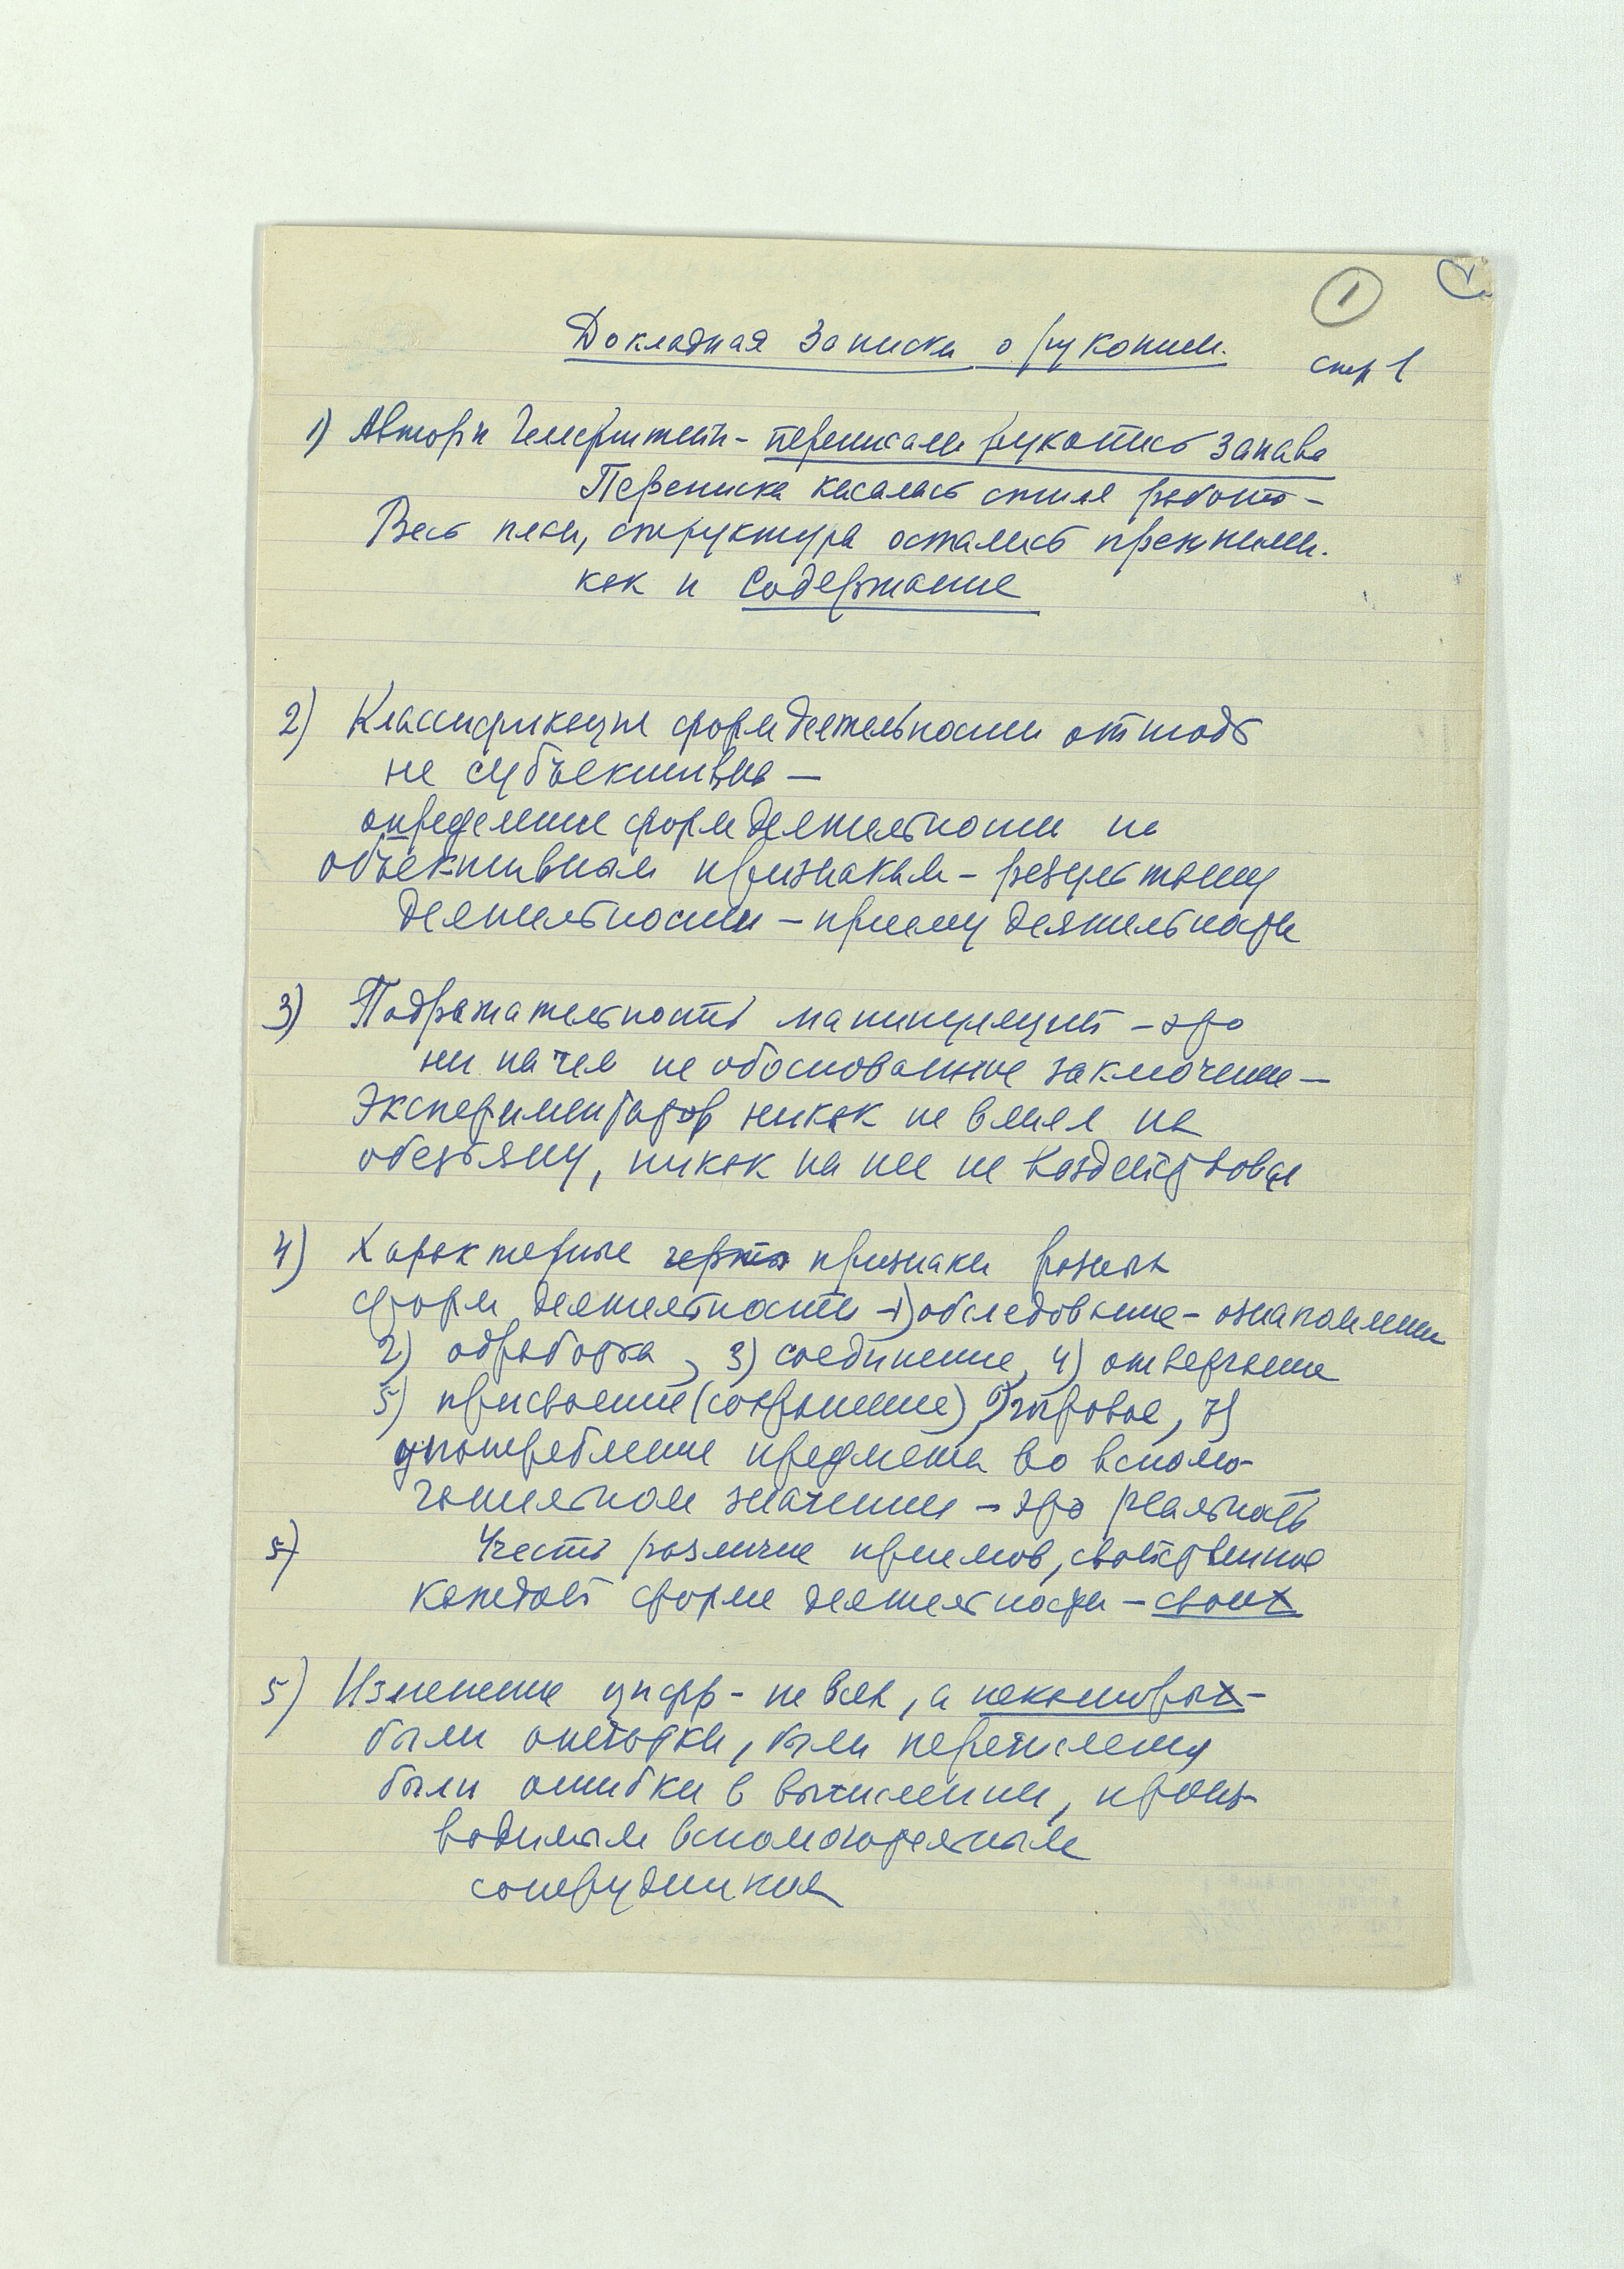 1
Докладная записка о рукописи.
стр 1
1) Автор и Гемерштейн - переписали рукопись заново
Переписка касалась стиля работы -
Весь план, структура остались прежними.
как и содержание
2) Классификация форм деятельности отнюдь
не субъективна —
определение форм деятельности по
объективным признакам - результату
деятельности - приему деятельности
3) Подражательность манипуляций - это
ни на чем не обоснованное заключение —
Экспериментатор никак не влиял на
обезьяну, никак на нее не воздействовал
4) Характерные черты признаки разных
форм деятельности - 1) обследование - ознакомление
2) обработка, 3) соединение, 4) отвергание
5) присвоение (сохранение) 6) игровое, 7)
употребление предмета во вспомо-
гательном значении - это реальность
5) Учесть различие приемов, свойственное
каждой форме деятельности - своих
5) Изменение цифр - не всех, а некоторых -
были описки, были перечислены
были ошибки в вычислении, произ-
водимым вспомогательным
сотрудником